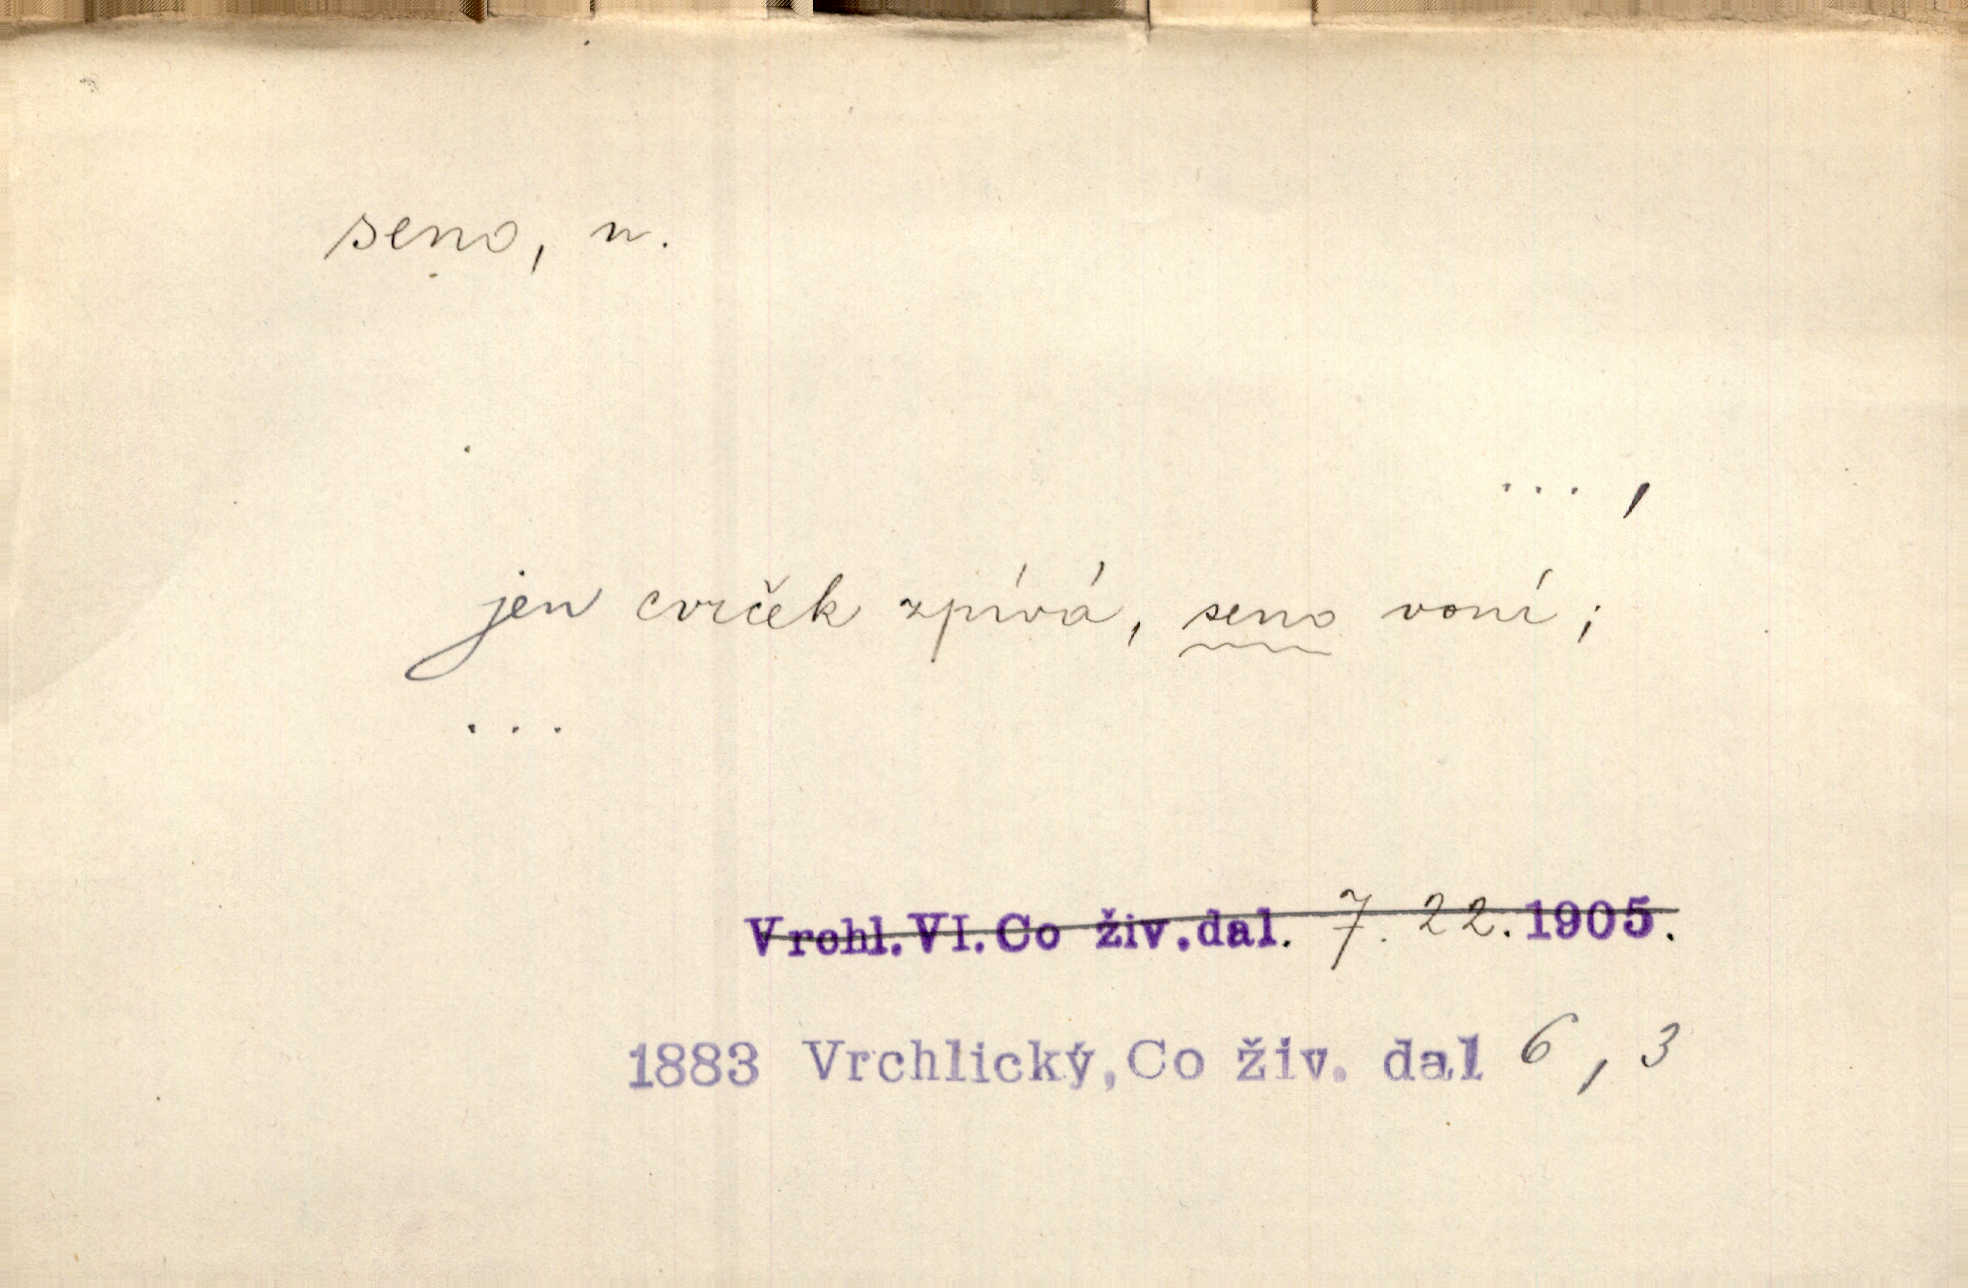 seno, n.
... ,
jen cvrček zpívá, seno voní;
...
Vrchl.VI.Co živ.dal. 7. 22. 1905.
1883 Vrchlický, Co živ. dal 6, 3